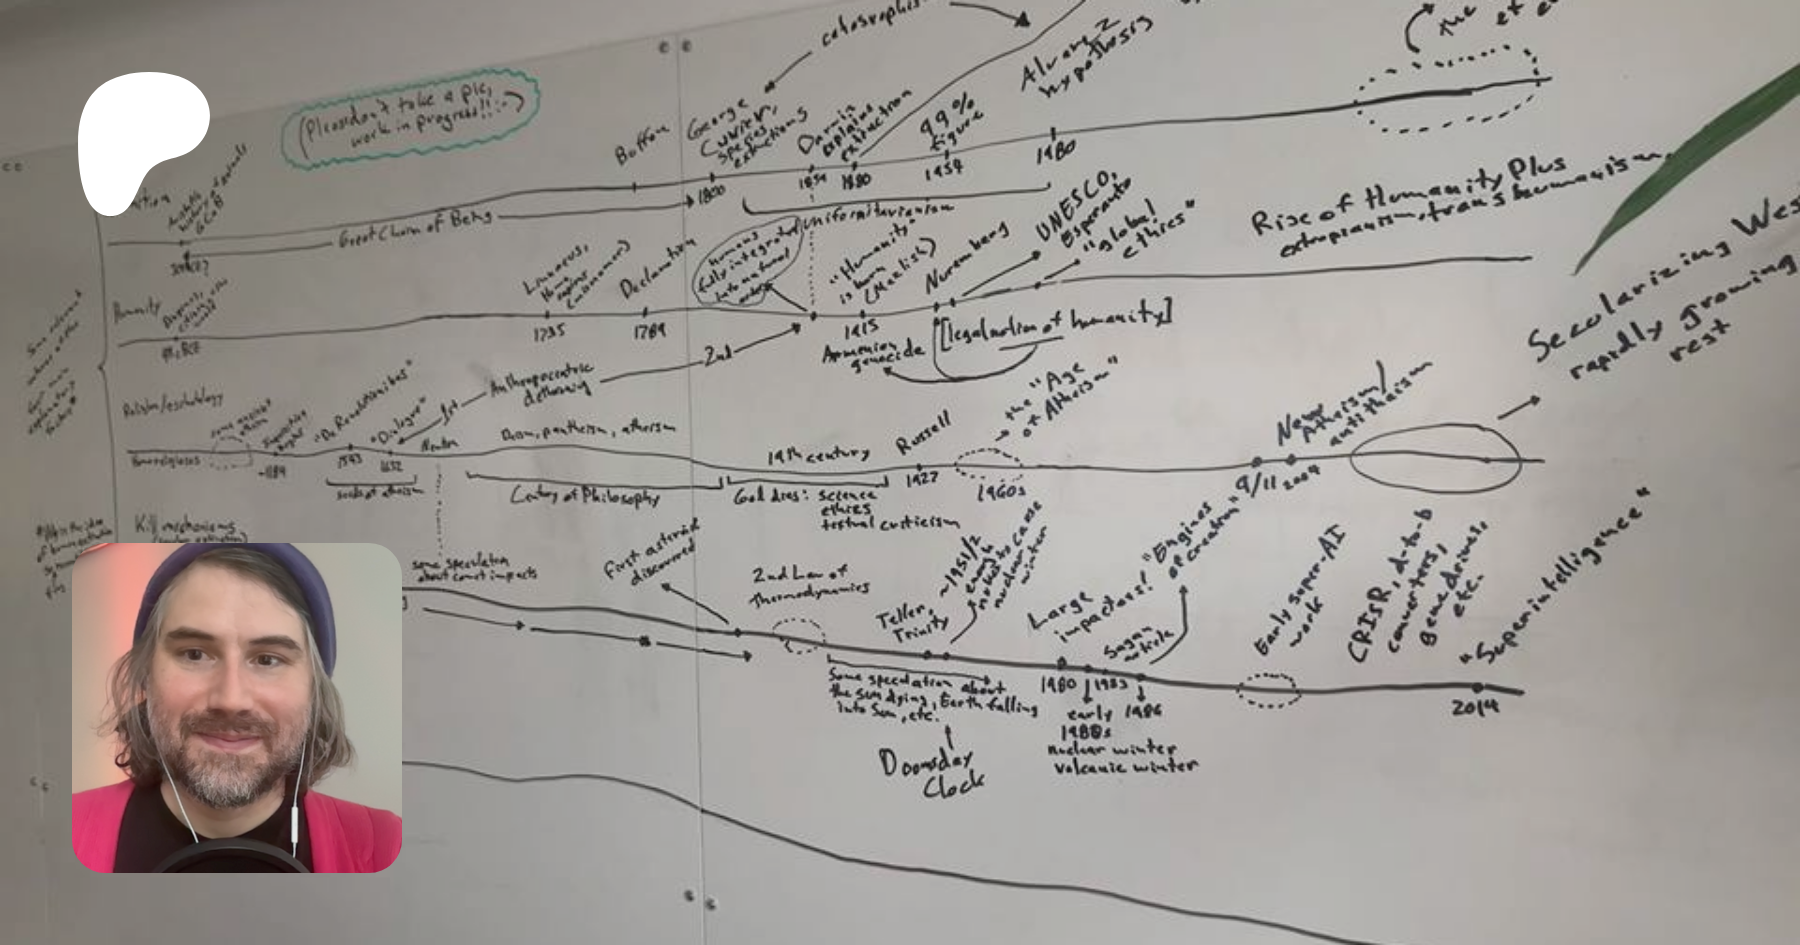 catastrophis
the
(Please don't take a pic,
work in progress!! :-)
Buffon
George
Cuvier,
species
extinctions
Darwin
explains
extinction
99%
figure
Alvarez
hypothesis
1800
1859
1880
1954
1980
Great Chain of Being
uniformitarianism
Humans
fully integrated
into natural
order
Linnaeus,
Homo
sapiens
Declaration
"Humanity"
is born
Nuremberg
UNESCO,
Esperanto
"global
ethics"
Rise of Humanity Plus
extropianism, transhumanism,
Humanity
1735
1789
1915
Armenian
genocide
[legal notion of humanity]
2nd
1st
Anthropocentric
dethroning
Secularizing West
rapidly growing
rest
Religion/eschatology
"De Revolutionibus"
"Dialogue"
Newton
Deism, pantheism, atheism
19th century
Russell
the "Age
of Atheism"
New
Atheism/
antitheism
1543
1632
seeds of atheism
Century of Philosophy
God dies: science
ethics
textual criticism
1927
1960s
9/11
2004
Kill mechanisms
some speculation
about comet impacts
First asteroid
discovered
2nd Law of
Thermodynamics
Teller,
Trinity
~1951/2
enough
nukes to cause
nuclear
winter
Large
impactors!
Sagan
article
"Engines
of creation"
Early super-AI
work
CRISR, d-to-b
converters,
gene drives,
etc.
"Superintelligence"
Some speculation about
the sun dying, Earth falling
into Sun, etc.
Doomsday
Clock
1980
1983
1986
early
1980s
nuclear winter
volcanic winter
2014